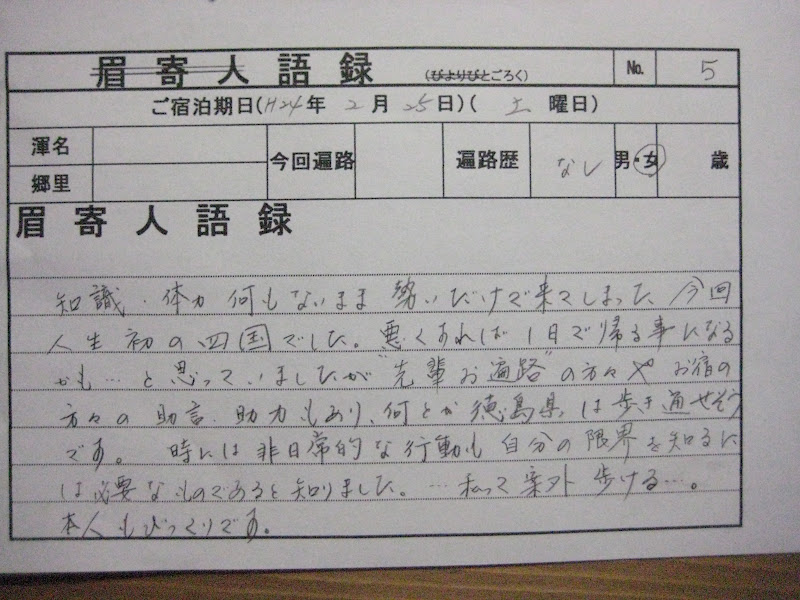 眉寄人語録 (びよりびとごろく) No. 5
ご宿泊期日(H24年 2月 25日)( 土 曜日)
渾名 今回遍路 遍路歴 なし 男・女 歳
郷里
眉寄人語録
知識・体力 何もないまま 勢いだけで来てしまった 今回
人生初の四国でした。悪くあれば 1日で帰る事になる
かも…と思っていましたが "先輩お遍路"の方々や お宿の
方々の助言、助力もあり、何とか徳島県は歩き通せそう
です。 時には非日常的な行動も 自分の限界を知るに
は必要なものであると知りました。…私って案外 歩ける…。
本人もびっくりです。